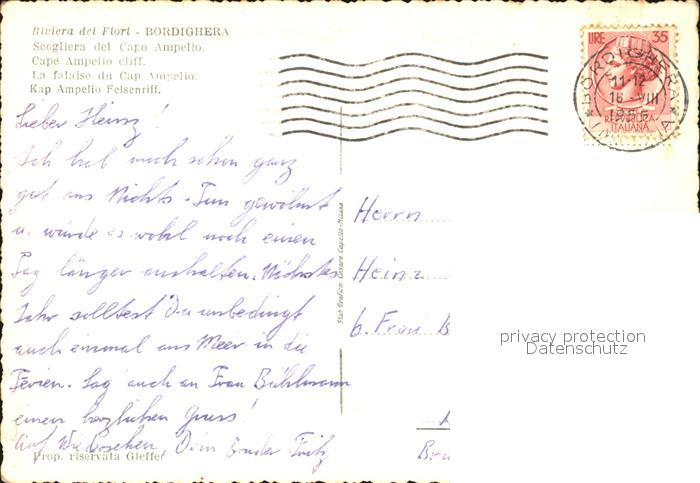 Riviera dei Fiori - BORDIGHERA
Scogliera del Capo Ampelio.
Cape Ampelio cliff.
La falaise du Cap Ampelio.
Kap Ampelio Felsenriff.
Lieber Heinz!
Ich hab mich schon ganz
gut ans Nichts-Tun gewöhnt
u. würde es wohl noch einen
Tag länger aushalten. Nächstes
Jahr solltest Du unbedingt
auch einmal ans Meer in die
Ferien. Sag auch an Frau Bühlmann
einen herzlichen Gruss!
Auf Wiedersehen, Dein Bruder Fritz
Prop. riservata Gieffe
Stab. Grafico Cesare Capello - Milano
LIRE 35
REPUBBLICA
ITALIANA
BORDIGHERA
11-12
16 VIII
Herrn
Heinz
b. Frau B
Bru
privacy protection
Datenschutz